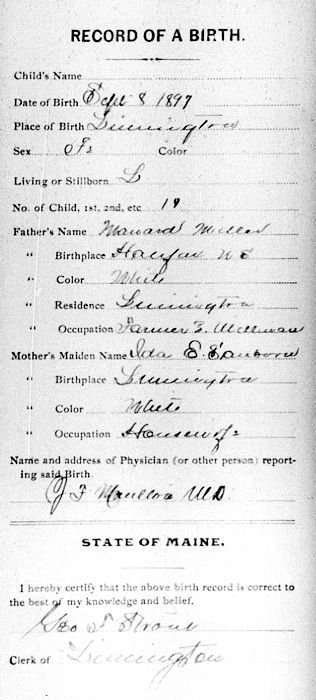 RECORD OF A BIRTH.
Child's Name
Date of Birth Sept 8 1897
Place of Birth Limington
Sex F Color
Living or Stillborn L
No. of Child, 1st, 2nd, etc 1
Father's Name
" Birthplace Halifax N S
" Color White
" Residence Limington
" Occupation Farmer &
Mother's Maiden Name Ida E. Sanborn
" Birthplace Limington
" Color White
" Occupation Housewife
Name and address of Physician (or other person) report-
ing said Birth
M.D.
STATE OF MAINE.
I hereby certify that the above birth record is correct to
the best of my knowledge and belief.
Geo F Strout
Clerk of Limington